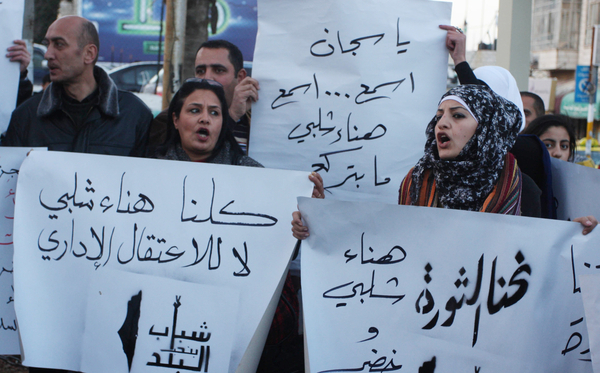 يا سجان
اسمع ... اسمع
هناء شلبي
ما بتركع
كلنا هناء شلبي
لا للاعتقال الإداري
شباب
بنحب
البلد
هناء
شلبي
و
خضر
نحنا الثورة